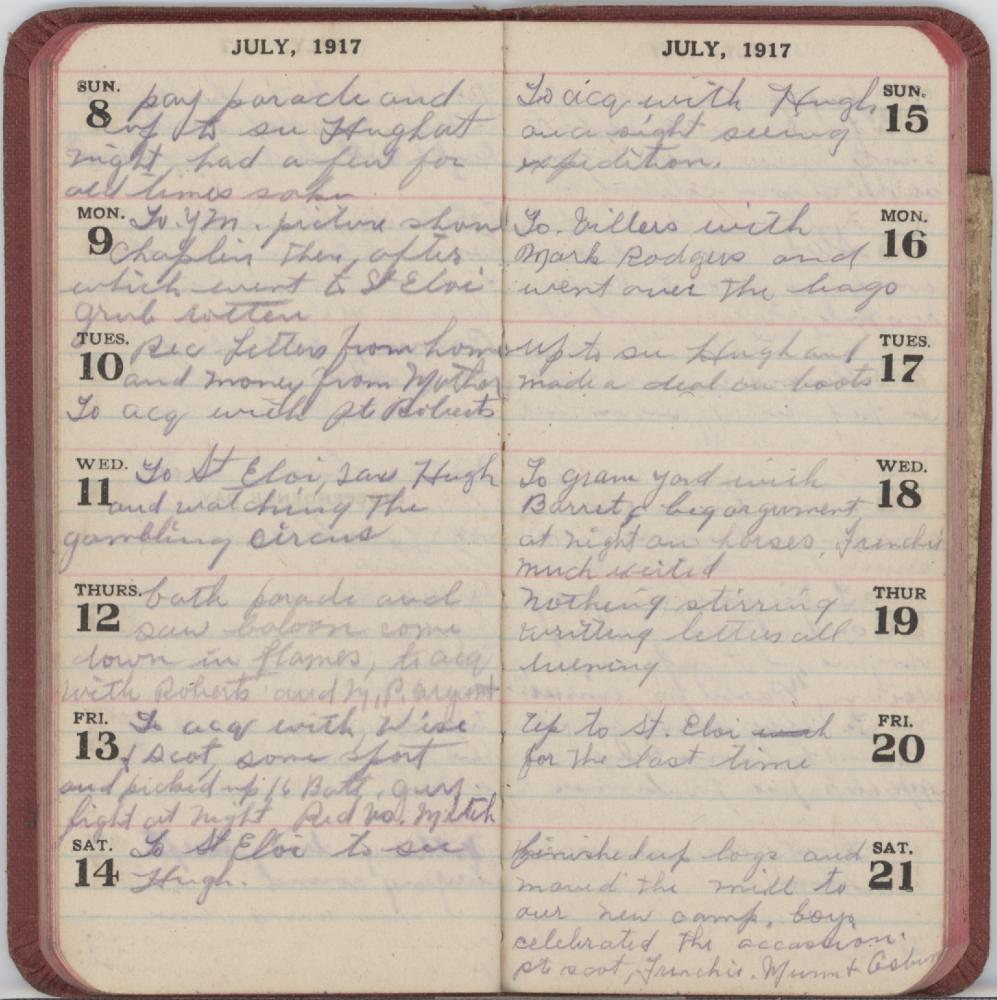 JULY, 1917
SUN.
8 pay parade and
up to see Hugh at
night, had a few for
old times sake
MON.
9 To Y.M. picture show
Chaplin there, after
which went to St Eloi
grub rotten
TUES.
10 Rec letters from home
and money from Mother
To acq with Pte Roberts
WED.
11 To St Eloi, saw Hugh
and watching the
gambling circus
THURS.
12 bath parade and
saw baloon come
down in flames, to acq
with Roberts and M.P. argument
FRI.
13 To acq with Wise
& Scot, some sport
and picked up 16 Batt. guy.
fight at night Red vs. Mitch
SAT.
14 To St Eloi to see
Hugh.
JULY, 1917
SUN.
15 To acq with Hugh
on a sight seeing
expedition.
MON.
16 To Villers with
Mark Rodgers and
went over the bags
TUES.
17 Up to see Hugh and
made a deal on boots
WED.
18 To yard with
Barrett, big argument
at night on horses, Frenchie
much excited
THUR
19 Nothing stirring
writting letters all
evening
FRI.
20 Up to St. Eloi with
for the last time
SAT.
21 finished up logs and
moved the mill to
our new camp, boys
celebrated the occassion.
Pte Scot, Frenchie, Munn &